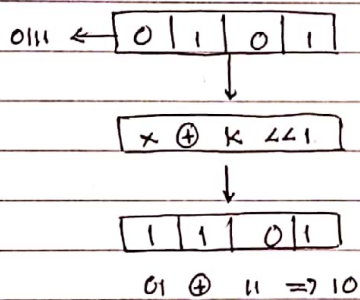 0111 ← 0 | 1 | 0 | 1
x ⊕ k <<1
1 | 1 | 0 | 1
01 ⊕ 11 => 10